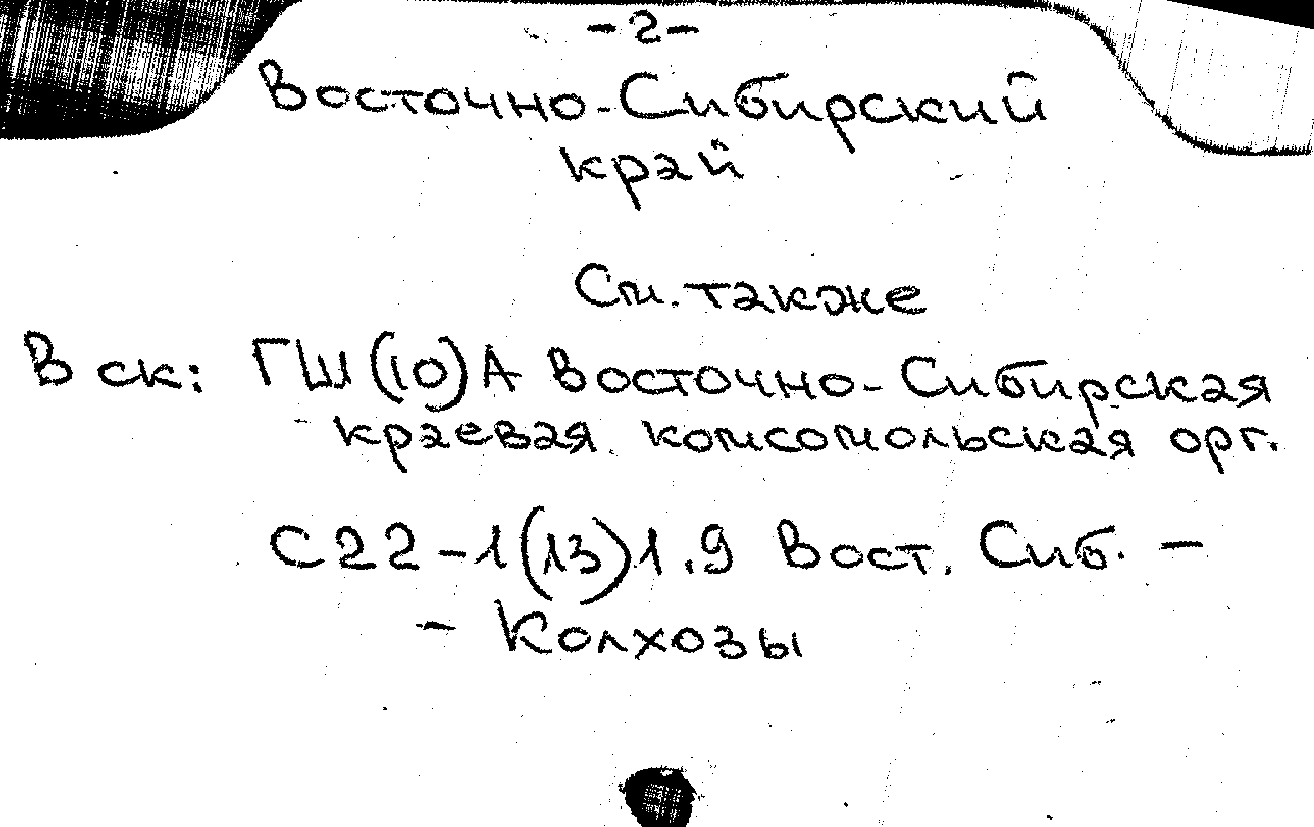 -2-
Восточно-Сибирский
край
См. также
В ск: ГШ(10)А Восточно-Сибирская
краевая комсомольская орг.
С22-1(13)1.9 Вост. Сиб. -
- Колхозы